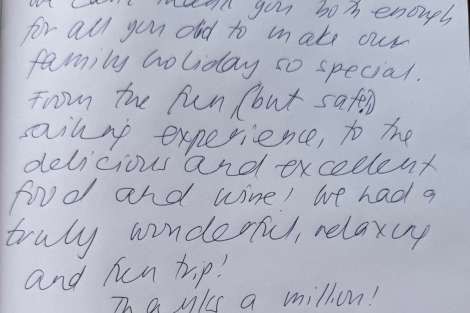 We can't thank you both enough
for all you did to make our
family holiday so special.
From the fun (but safe!)
sailing experience, to the
delicious and excellent
food and wine! We had a
truly wonderful, relaxing
and fun trip!
Thanks a million!